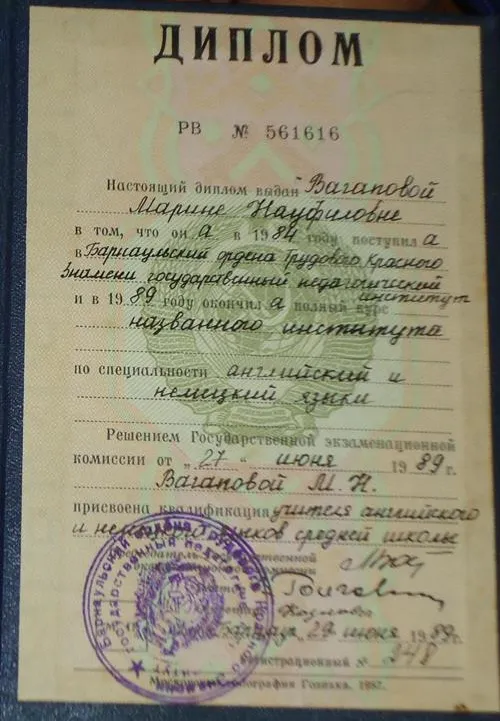 ДИПЛОМ
РВ № 561616
Настоящий диплом выдан Вагаповой
Марине Науфиловне
в том, что он а в 1984 году поступил а
в Барнаульский ордена Трудового Красного
Знамени государственный педагогический
институт
и в 1989 году окончил а полный курс
названного института
по специальности английский и
немецкий языки
Решением Государственной экзаменационной
комиссии от „27“ июня 1989 г.
Вагаповой М. Н.
присвоена квалификация учителя английского
и немецкого языков средней школы
Барнаул, 29 июня 1989 г.
Регистрационный № 348
Московская типография Гознака. 1987.